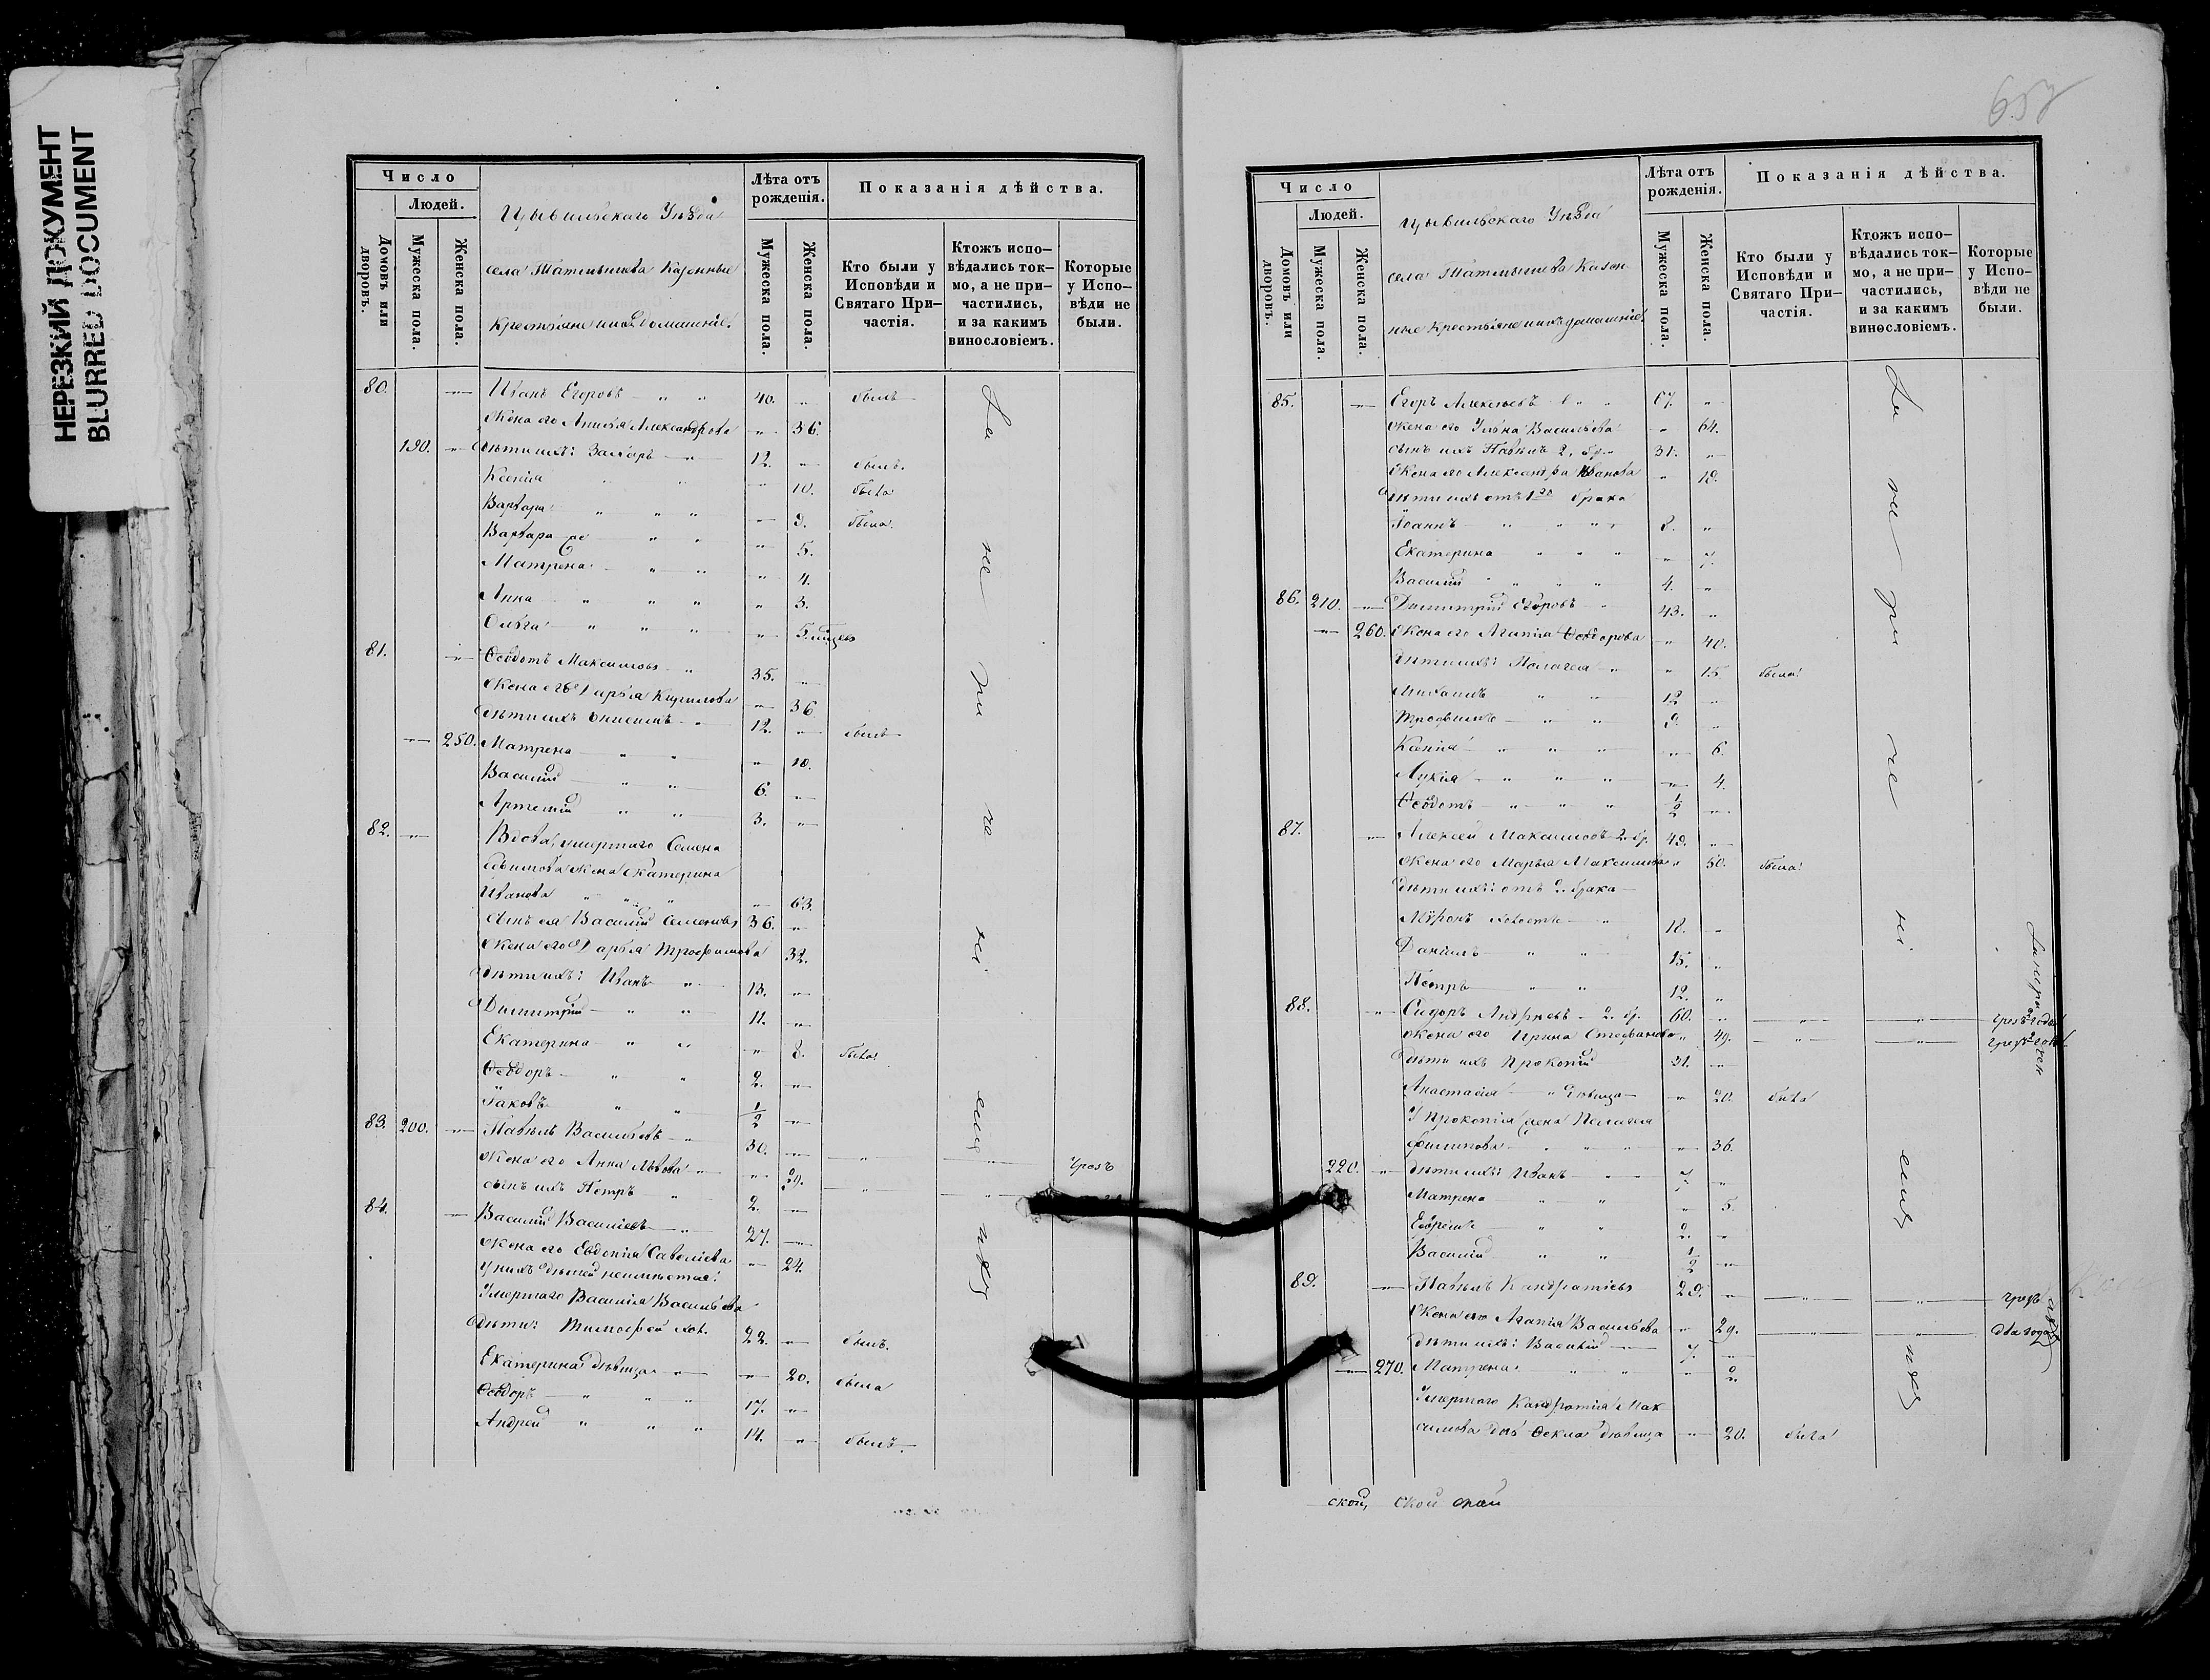 НЕРЕЗКИЙ ДОКУМЕНТ
BLURRED DOCUMENT
Число
Людей.
Домовъ или дворовъ.
Мужеска пола.
Женска пола.
Цывильскаго Уѣзда
села Казенные
Крестьяне и ихъ домашніе.
Лѣта отъ рожденія.
Мужеска пола.
Женска пола.
Показанія дѣйства.
Кто были у Исповѣди и Святаго Причастія.
Ктожъ исповѣдались токмо, а не причастились, и за какимъ винословіемъ.
Которые у Исповѣди не были.
80. Иванъ Егоровъ 40. былъ
Жена его Александрова 36.
190. дѣти ихъ: Захаръ 12. былъ.
Ксенія 10. была
Варвара 9. была.
Варвара 5.
Матрена 4.
Анна 3.
Ольга 5.
81. Ѳеодотъ Максимовъ 35.
Жена его Дарья Кирилова 36
дѣти ихъ Онисимъ 12. былъ
250. Матрена 10.
Василій 6.
Артемій 3.
82. Вдова, умершаго Семена
жена Екатерина
Иванова 63.
Сынъ ея Василій Семеновъ 36.
Жена его Дарья Трофимова 32.
дѣти ихъ: Иванъ 13.
Димитрій 11.
Екатерина 8. была
Ѳеодоръ 2.
Іаковъ 1/2
83. 200. Павелъ Васильевъ 30.
Жена его Анна Львова 29. чрезъ
сынъ ихъ Петръ 2.
84. Василій Васильевъ 27.
Жена его Евдокія Савельева 24.
у нихъ дѣтей неимѣется.
Умершаго Василія Васильева
дѣти: Тимофей хол. 22. былъ.
Екатерина дѣвица 20. была
Ѳеодоръ 17.
Андрей 14. былъ.
За не при че ні емъ
Число
Людей.
Домовъ или дворовъ.
Мужеска пола.
Женска пола.
Цывильскаго Уѣзда
села Казен
ные Крестьяне и ихъ домашніе.
Лѣта отъ рожденія.
Мужеска пола.
Женска пола.
Показанія дѣйства.
Кто были у Исповѣди и Святаго Причастія.
Ктожъ исповѣдались токмо, а не причастились, и за какимъ винословіемъ.
Которые у Исповѣди не были.
85. Егоръ Алексѣевъ 67.
жена его Ульяна Васильева 64.
сынъ ихъ Павелъ 2. бр. 31.
Жена его Александра Иванова 19.
дѣти ихъ отъ 1го брака
Іоаннъ 8.
Екатерина 7.
Василій 4.
86. 210. Димитрій Егоровъ 43.
260. Жена его Агапія Ѳеодорова 40.
дѣти ихъ: Палагея 15. была
Михаилъ 12
Трофимъ 9.
Ксенія 6.
Лукія 4.
Ѳеодотъ 1/2
87. Алексей Максимовъ 2. бр. 49.
Жена его Марья Максимова 50. была
дѣти ихъ: отъ 2. брака
Миронъ холостъ 18.
Даніилъ 15.
Петръ 12.
88. Сидоръ Андреевъ 2. бр. 60. чрезъ 2 года
жена его Ирина Стефанова 49. чрезъ 2 года
дѣти ихъ Прокопій 31.
Анастасія дѣвица 20. была
У Прокопія жена Пелагея
Филипова 36.
220. дѣти ихъ: Иванъ 7.
Матрена 5.
Ефремъ 2.
Василій 1/2
89. Павелъ Кандратьевъ 29. чрезъ
Жена его Агапія Васильева 29. два года
дѣти ихъ: Василій 7.
270. Матрена 2.
Умершаго Кандратія Мак
симова дочь Ѳекла дѣвица 20. была
За не при че ні емъ
ской, ской ской